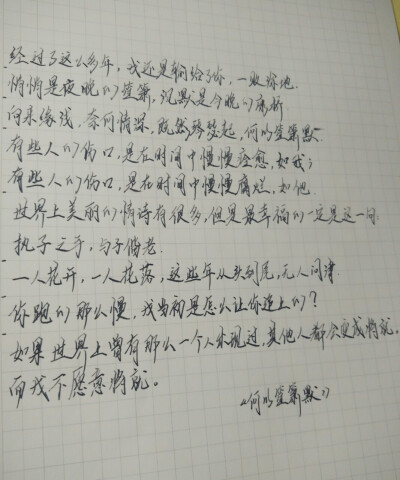 经过了这么多年，我还是输给了你，一败涂地.
悄悄是夜晚的笙箫，沉默是今晚的康桥
向来缘浅，奈何情深，既然琴瑟起，何以笙箫默.
有些人的伤口，是在时间中慢慢痊愈，如我；
有些人的伤口，是在时间中慢慢腐烂，如他.
世界上美丽的情诗有很多，但是最幸福的一定是这一句:
执子之手，与子偕老.
一人花开，一人花落，这些年从头到尾，无人问津.
你跑的那么慢，我当初是怎么让你追上的？
如果世界上曾有那么一个人出现过，其他人都会变成将就。
而我不愿意将就。
《何以笙箫默》